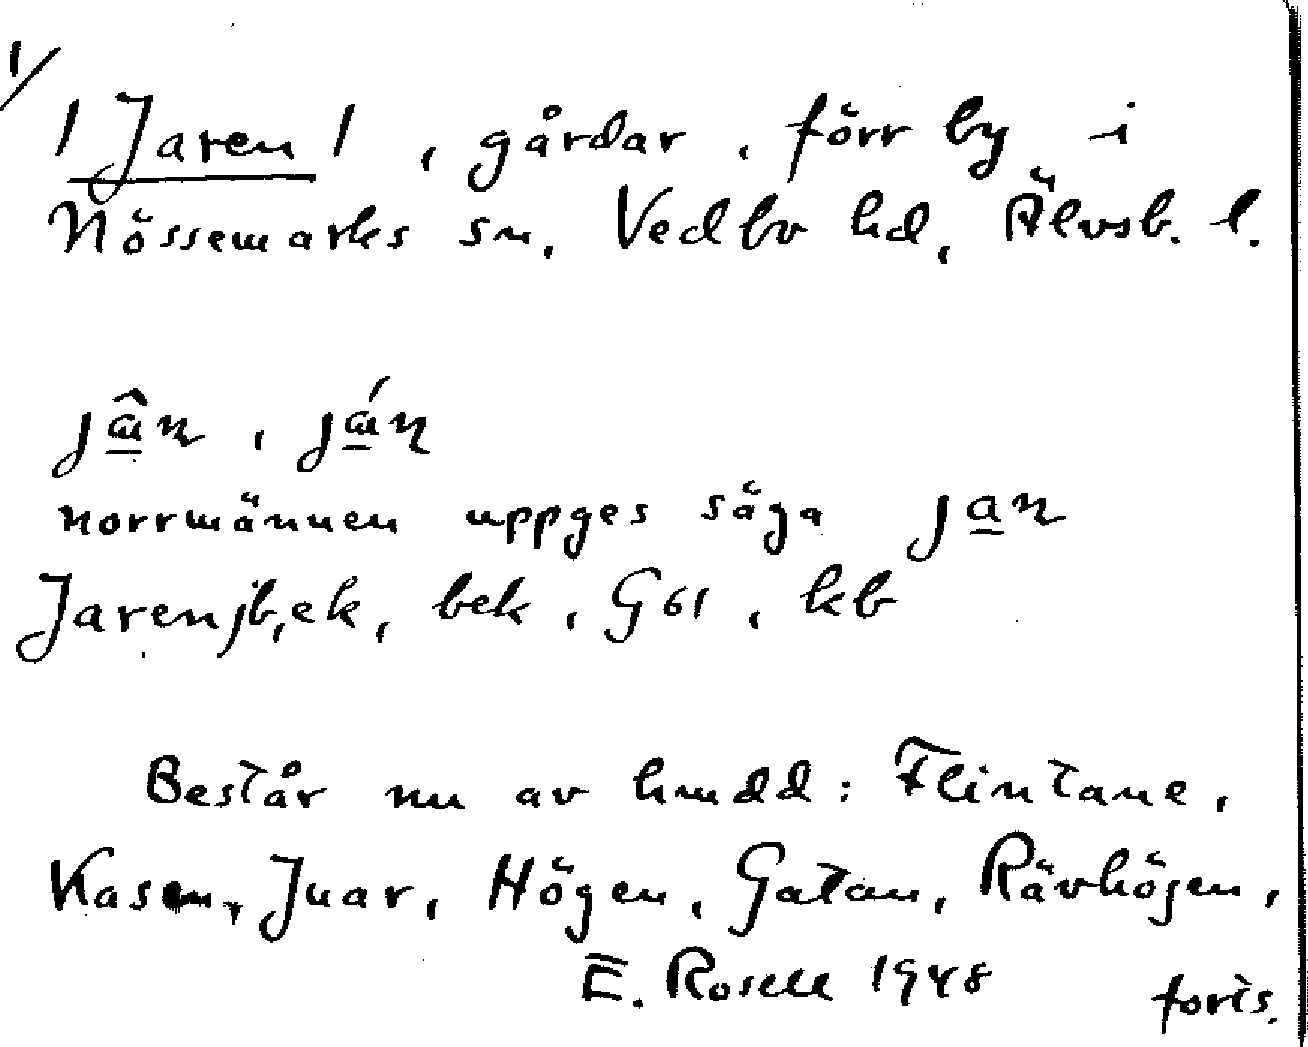 1/
/ Jaren /, gårdar, förr by i
Nössemarks sn, Vedbo hd, Älvsb. l.
jâ̱n, já̱n
norrmännen uppges säga ja̱n
Jarenjb,ek, bek, G61, kb
Består nu av hmdd: Flintane,
Kasen, Juar, Högen, Gatan, Rävhögen,
E. Rosell 1948 forts.